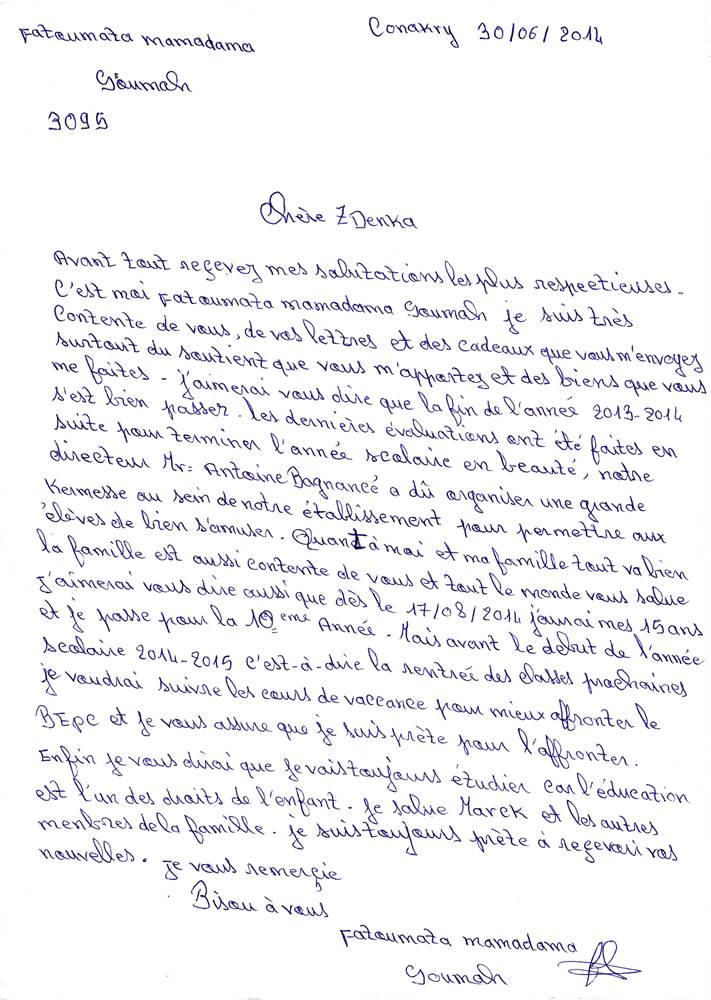 Fatoumata mamadama
Conakry 30/06/2014
Soumah
3095
Chère ZDenka
Avant tout reçevez mes salutations les plus respectieuses.
C'est moi Fatoumata mamadama Soumah je suis très
Contente de vous, de vos lettres et des cadeaux que vous m'envoyez
surtout du soutient que vous m'apportez et des biens que vous
me faites - j'aimerai vous dire que la fin de l'année 2013-2014
s'est bien passer. les dernières évaluations ont été faites en
suite pour terminer l'année scolaire en beauté, notre
directeur Mr: Antoine Bagnancé a dû organiser une grande
Kermesse au sein de notre établissement pour permettre aux
élèves de bien s'amuser. Quant à moi et ma famille tout va bien
la famille est aussi contente de vous et tout le monde vous salue
j'aimerai vous dire aussi que dès le 17/08/2014 j'aurai mes 15 ans
et je passe pour la 10eme Année. Mais avant le debut de l'année
scolaire 2014-2015 c'est-à-dire la rentrée des classes prochaines
je voudrai suivre les cours de vaccance pour mieux affronter le
BEPC et je vous assure que je suis prète pour l'affronter.
Enfin je vous dirai que je vais toujours étudier car l'éducation
est l'un des droits de l'enfant. je salue Marck et les autres
menbres de la famille. je suis toujours prète à reçevoir vos
nouvelles. je vous remerçie
Bisou à vous
Fatoumata mamadama
Soumah